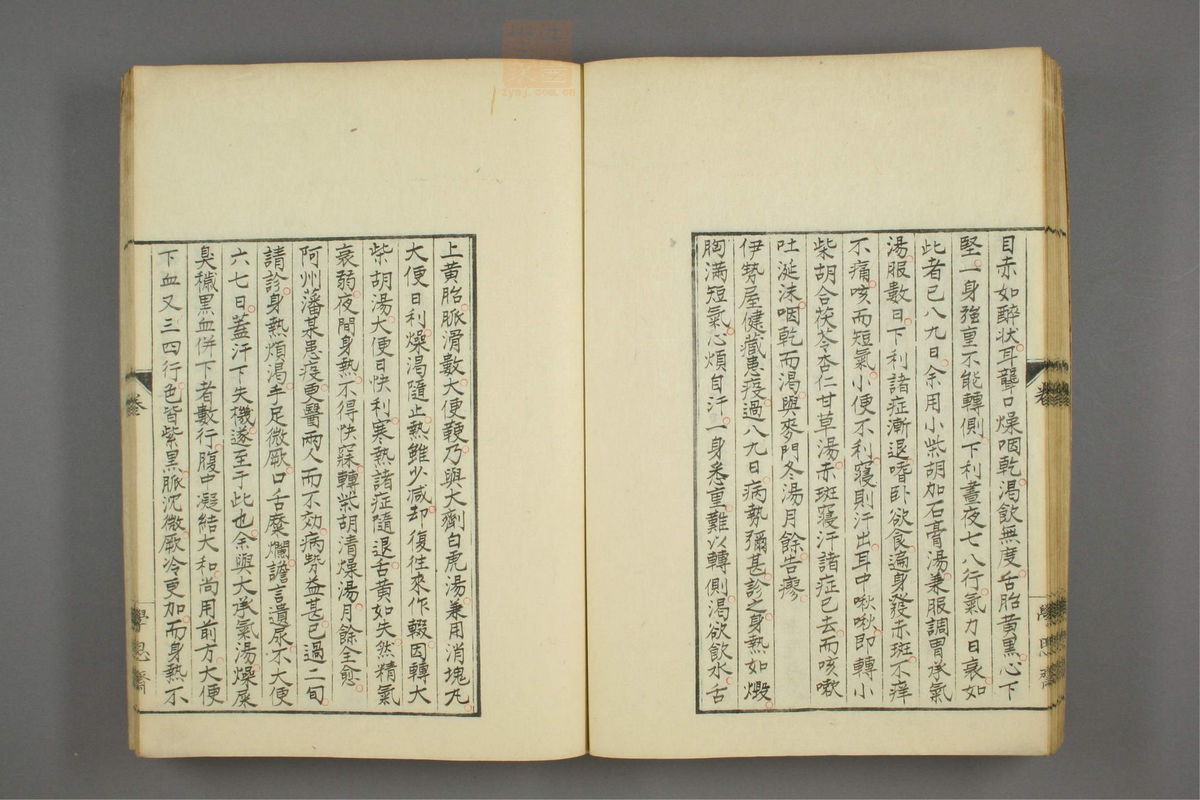 目赤如醉状耳聾口燥咽乾渴飲無度舌胎黃黑心下
堅一身強重不能轉側下利晝夜七八行氣力日衰如
此者已八九日余用小柴胡加石膏湯兼服調胃承氣
湯服數日下利諸症漸退嗜卧欲食遍身發赤斑不痒
不痛咳而短氣小便不利寢則汗出耳中啾啾即轉小
柴胡合茯苓杏仁甘草湯赤斑寢汗諸症已去而咳嗽
吐涎沫咽乾而渴與麥門冬湯月餘告瘳
伊勢屋健藏患疫過八九日病勢彌甚診之身熱如燬
胸滿短氣心煩自汗一身悉重難以轉側渴欲飲水舌
上黃胎脈滑數大便鞕乃與大劑白虎湯兼用消塊丸
大便日利燥渴隨止熱雖少減却復往來作輟因轉大
柴胡湯大便日快利寒熱諸症隨退舌黃如失然精氣
衰弱夜間身熱不得快寐轉柴胡清燥湯月餘全愈
阿州藩某患疫更醫兩人而不効病勢益甚已過二旬
請診身熱煩渴手足微厥口舌糜爛譫言遺尿不大便
六七日蓋汗下失機遂至于此也余與大承氣湯燥屎
臭穢黑血併下者數行腹中凝結大和尚用前方大便
下血又三四行色皆紫黑脈沉微厥冷更加而身熱不
卷
學思齋
zysj.com.cn